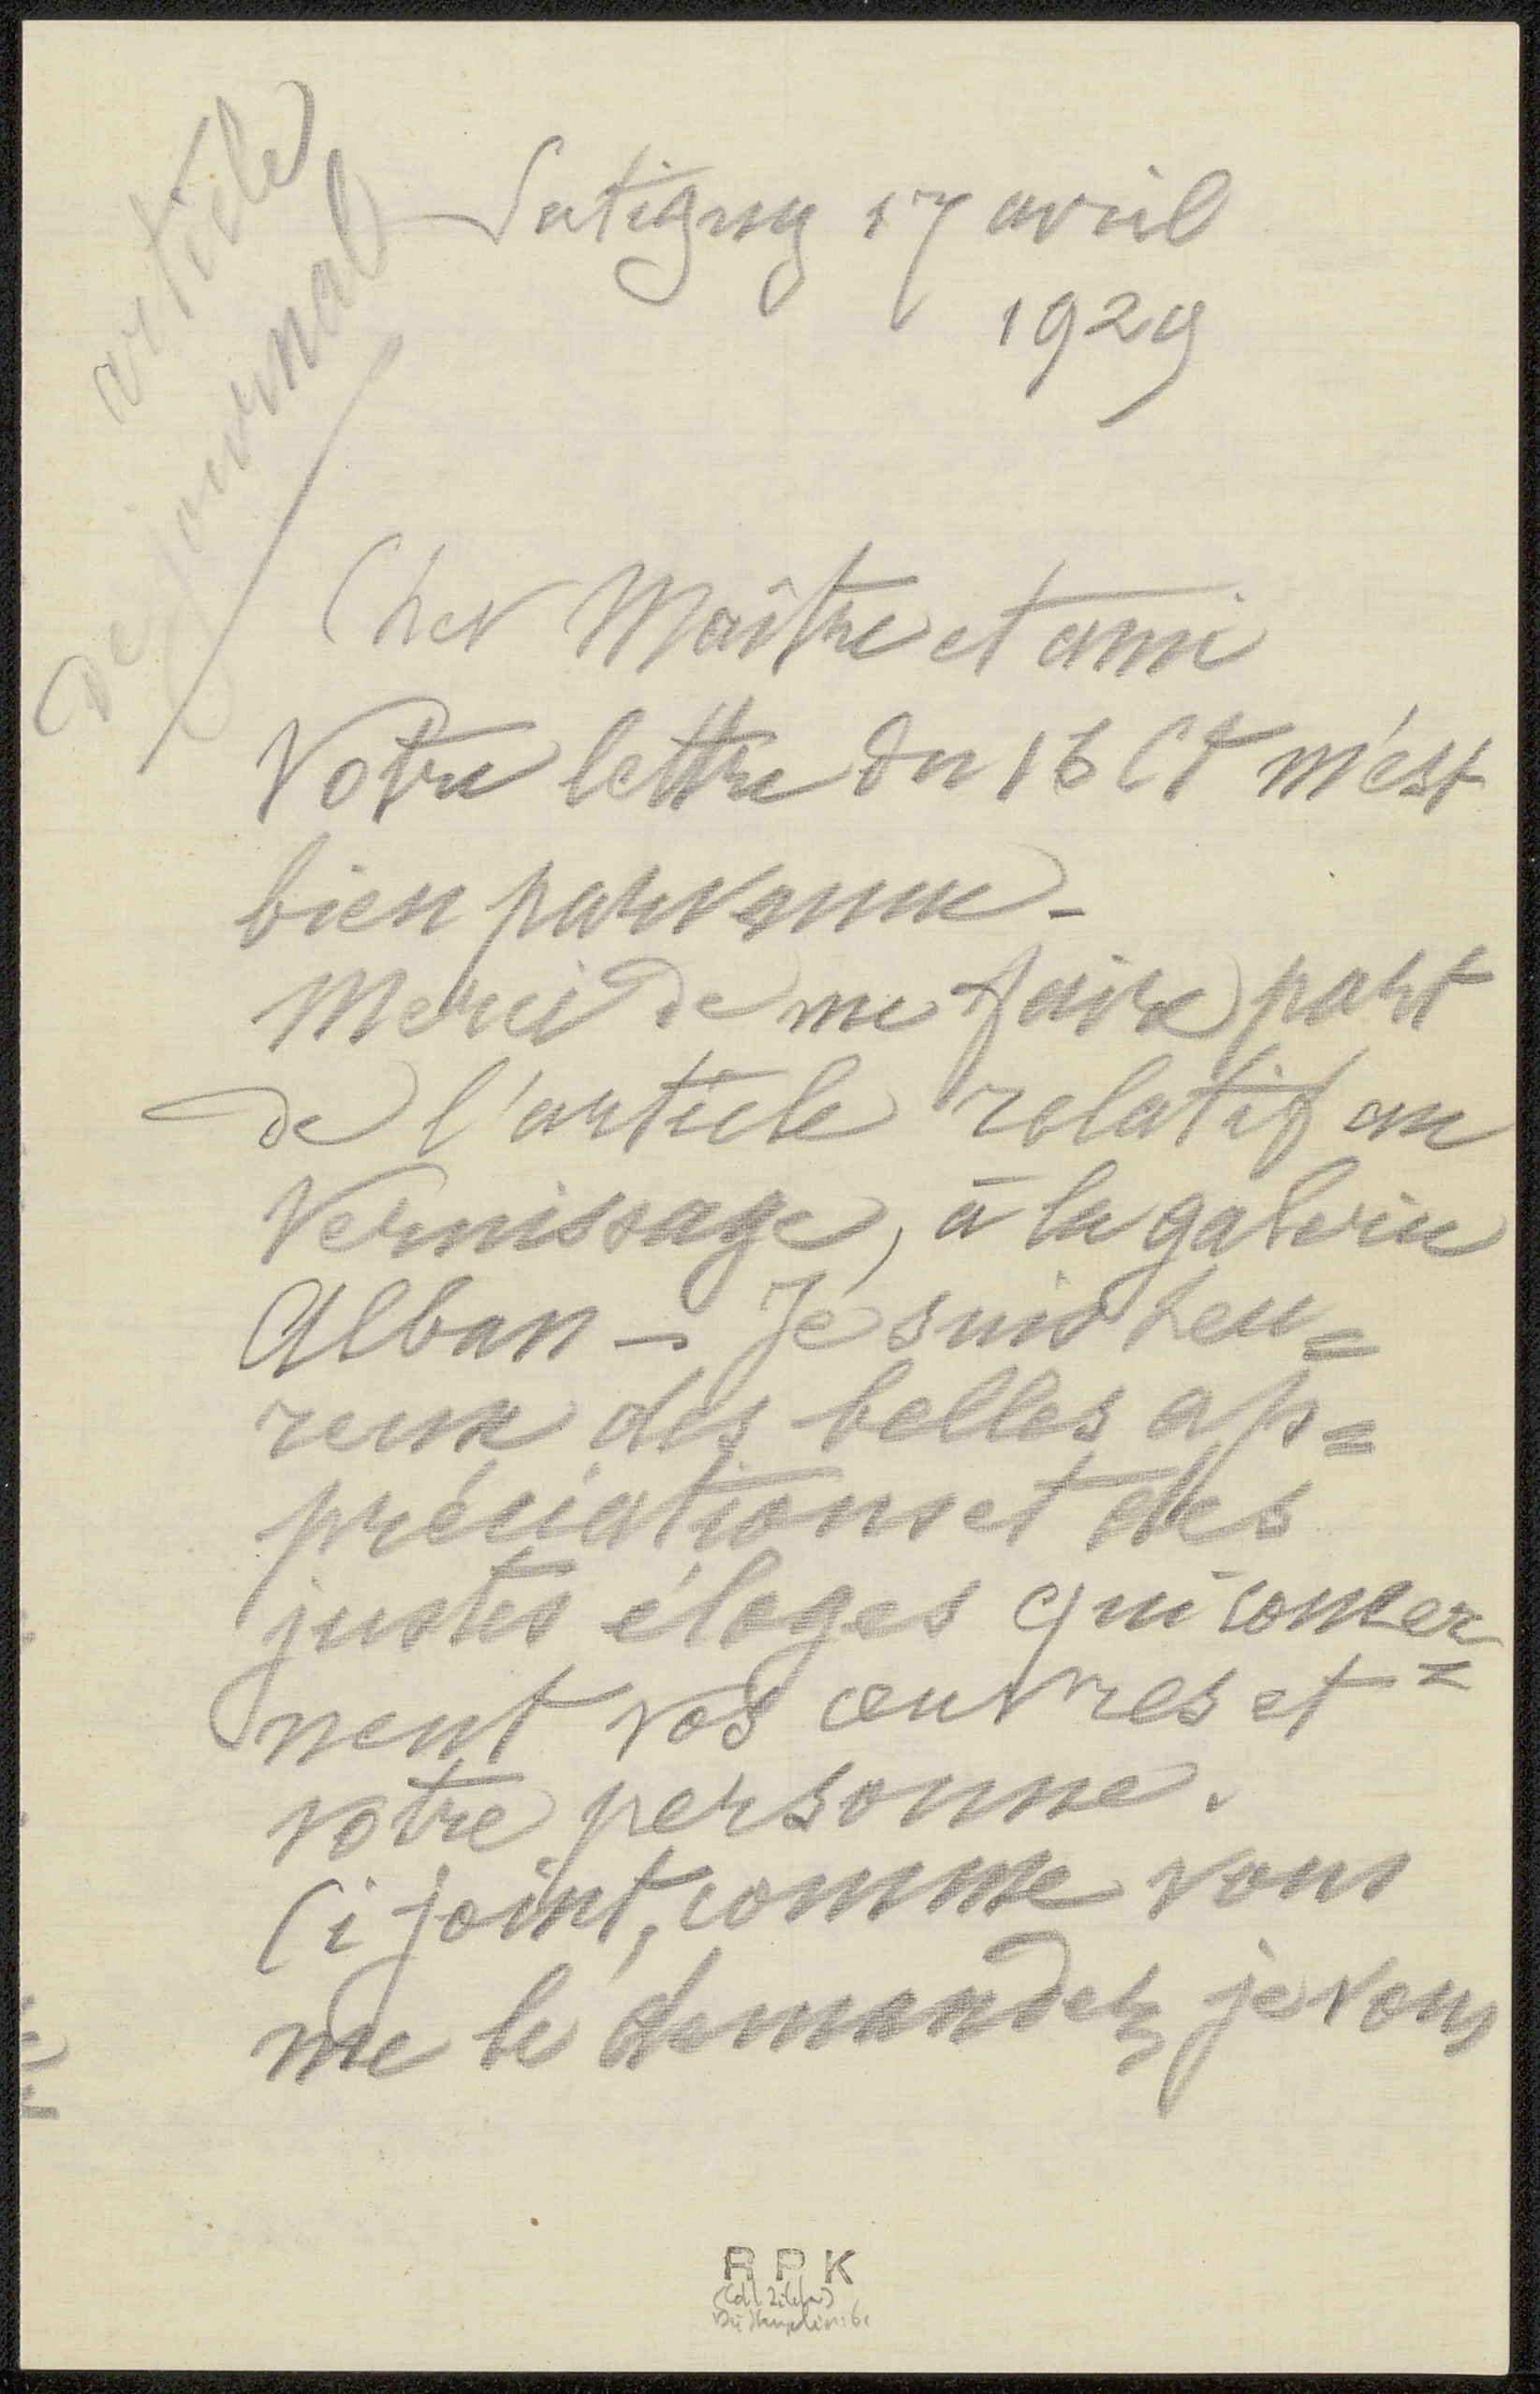 article
de journal
Satigny 17 avril
1929
Cher Maître et ami
Votre lettre du 16 Ct m'est
bien parvenue -
Merci de me faire part
de l'article relatif au
Vernissage, à la galerie
Alban - Je suis heu=
reux des belles ap=
préciations et des
justes éloges qui concer=
nent vos œuvres et
votre personne.
Ci joint, comme vous
me le demandez, je vous
RPK